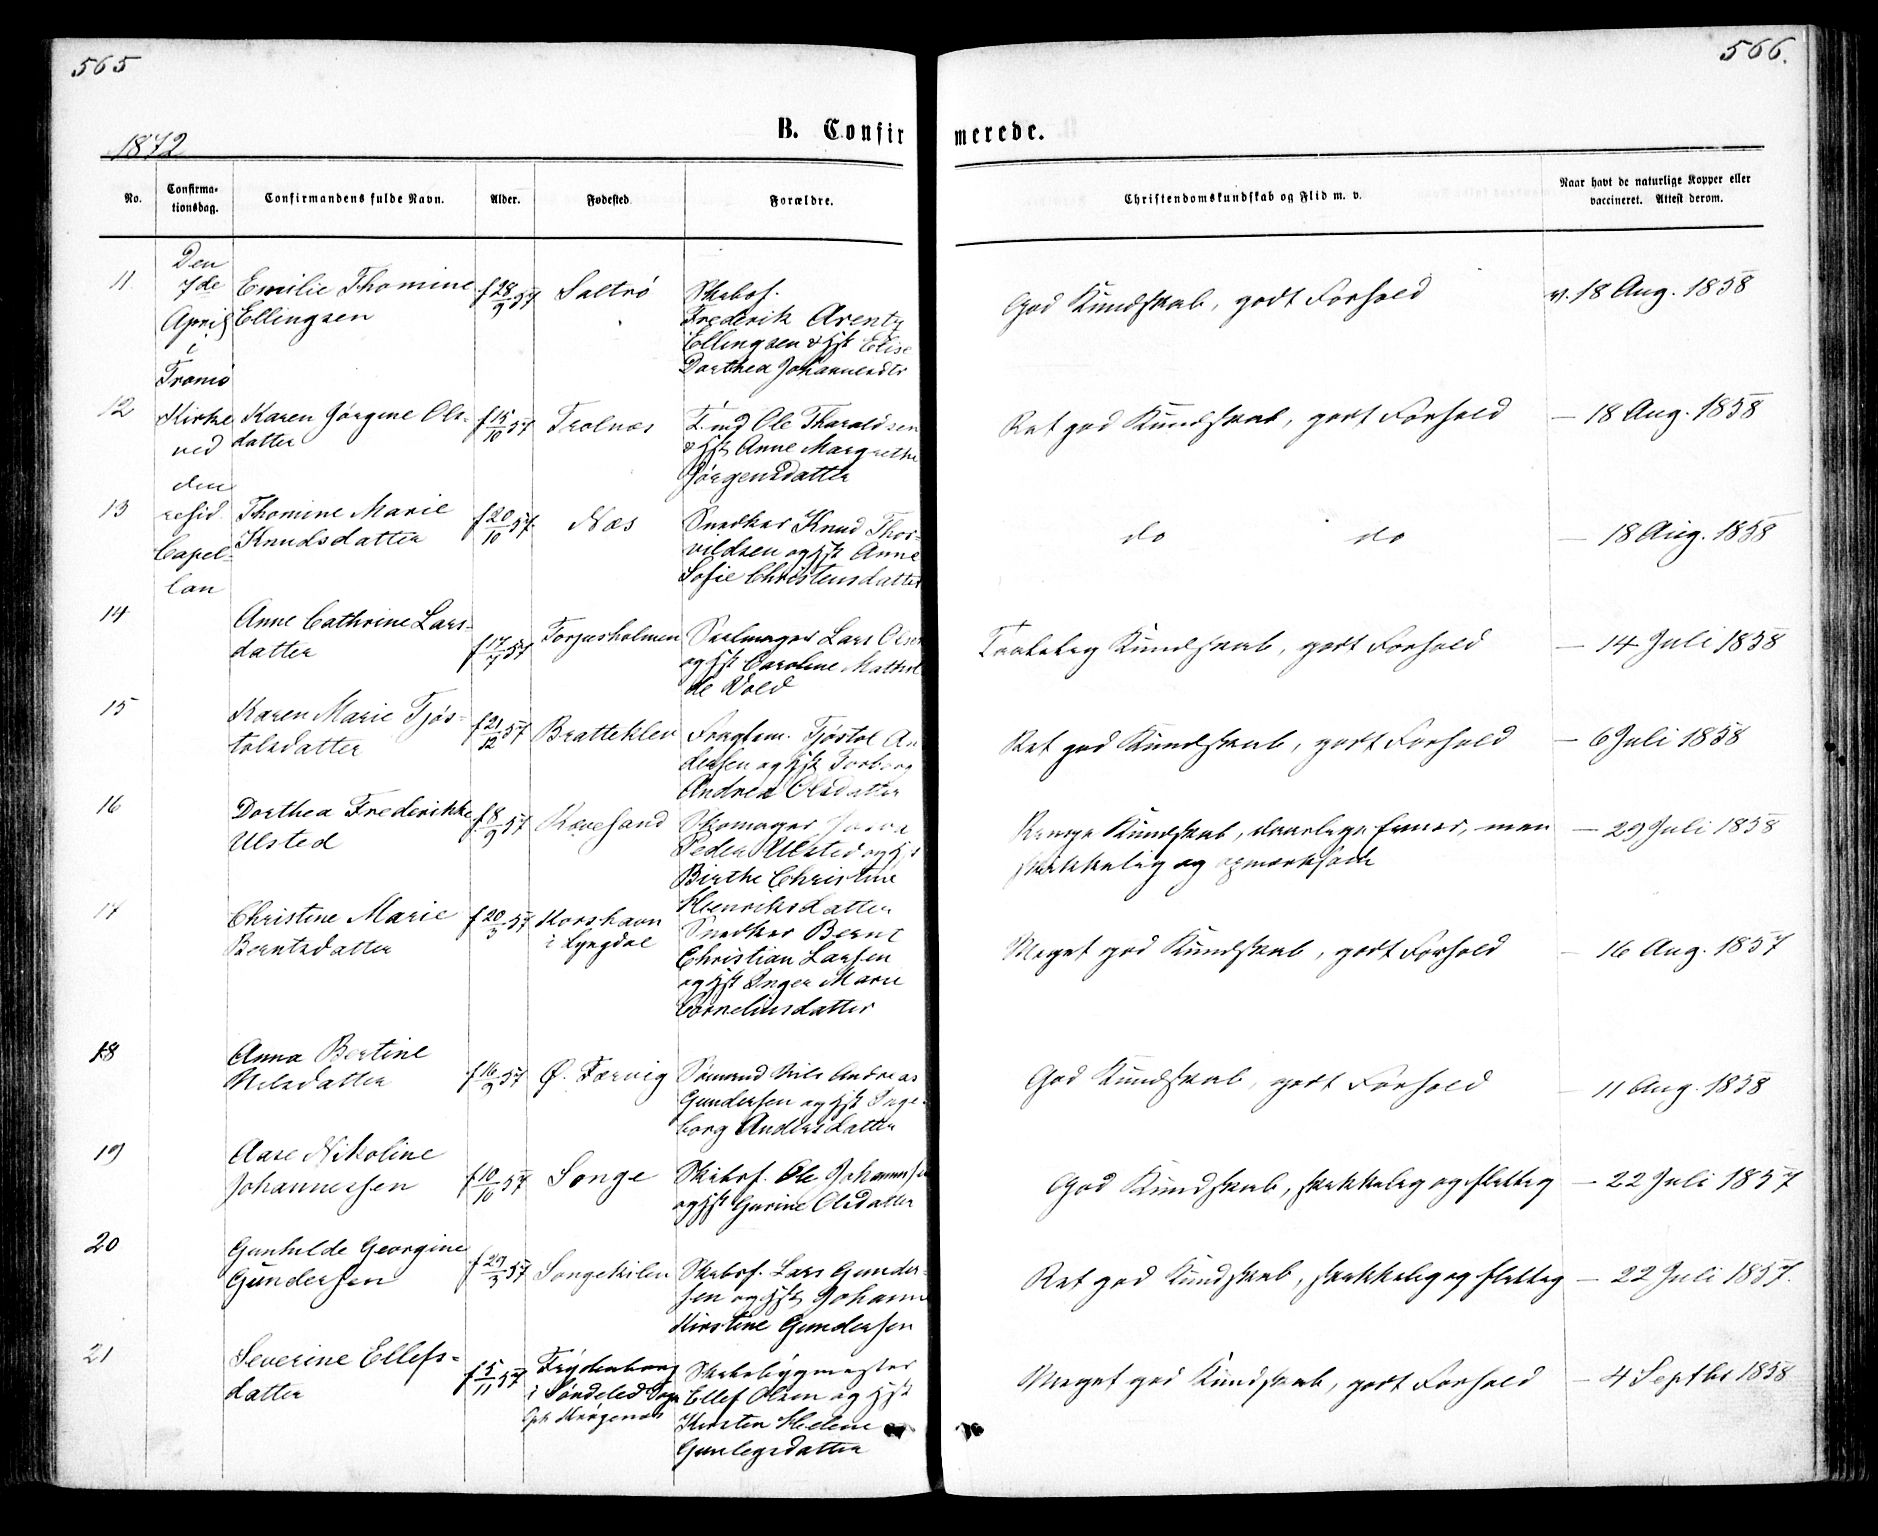 565
566.
B. Confir
merede.
1872
No.
Confirma-
tionsdag.
Confirmandens fulde Navn.
Alder.
Fødested.
Forældre.
Christendomskundskab og Flid m. v.
Naar havt de naturlige Kopper eller
vaccineret. Attest derom.
Den
7de
April
i
Tromø
Kirke
ved
den
resid.
Capel-
lan
11
Emilie Thomine
Ellingsen
f 28/9 57
Saltrø
Skibsf.
Frederik Arentz
Ellingsen & Hst Elise
Dorthea Johannesdtr
God Kundskab, godt Forhold
v. 18 Aug. 1858
12
Karen Jørgine Ols-
datter
f 15/10 57
Trolnæs
Ole Tharaldsen
& Hst Anne Margrethe
Jørgensdatter
Ret god Kundskab, godt Forhold
— 18 Aug. 1858
13
Thomine Marie
Knudsdatter
f 20/10 57
Næs
Snedker Knud Thor-
vildsen og Hst Anne
Sofie Christensdatter
do do
— 18 Aug. 1858
14
Anne Cathrine Lars-
datter
f 17/7 57
Torjusholmen
Seilmager Lars Olsen
og Hst Caroline Mathil
de Vold
Taalelig Kundskab, godt Forhold
— 14 Juli 1858
15
Karen Marie Tjøs-
tolsdatter
f 21/12 57
Bratteklev
Tjøstol An
dersen og Hst Torborg
Andrea Olsdatter
Ret god Kundskab, godt Forhold
— 6 Juli 1858
16
Dorthea Frederikke
Ulsted
f 8/9 57
Revesand
Skomager
Peder Ulsted og Hst
Birthe Christine
Henriksdatter
Kundskab, daarlige Evner, men
skikkelig og opmærksom
— 29 Juli 1858
17
Christine Marie
Berntsdatter
f 20/3 57
Korshavn
i Lyngdal
Snedker Bernt
Christian Larsen
og Hst Inger Marie
Corneliusdatter
Meget god Kundskab, godt Forhold
— 16 Aug. 1857
18
Anna Bertine
Nilsdatter
f 16/9 57
Ø. Færvig
Sømand Nils Andreas
Gundersen og Hst Inge-
borg Andersdatter
God Kundskab, godt Forhold
— 11 Aug. 1858
19
Aase Nikoline
Johannessen
f 10/10 57
Songe
Skibsf. Ole Johannessen
og Hst Gurine Olsdatter
God Kundskab, skikkelig og flittig
— 22 Juli 1857
20
Gunhilde Georgine
Gundersen
f 29/3 57
Songekilen
Skibsf. Lars Gunder-
sen og Hst Johanne
Kirstine Gundersen
Ret god Kundskab, skikkelig og flittig
— 22 Juli 1857.
21
Severine Ellefs-
datter
f 5/11 57
Frydenborg
i Søndeled Sogn
Skibsbygmester
Ellef Olsen og Hst
Kirsten Helene
Gunlegsdatter
Meget god Kundskab, godt Forhold
— 4 Septbr 1858